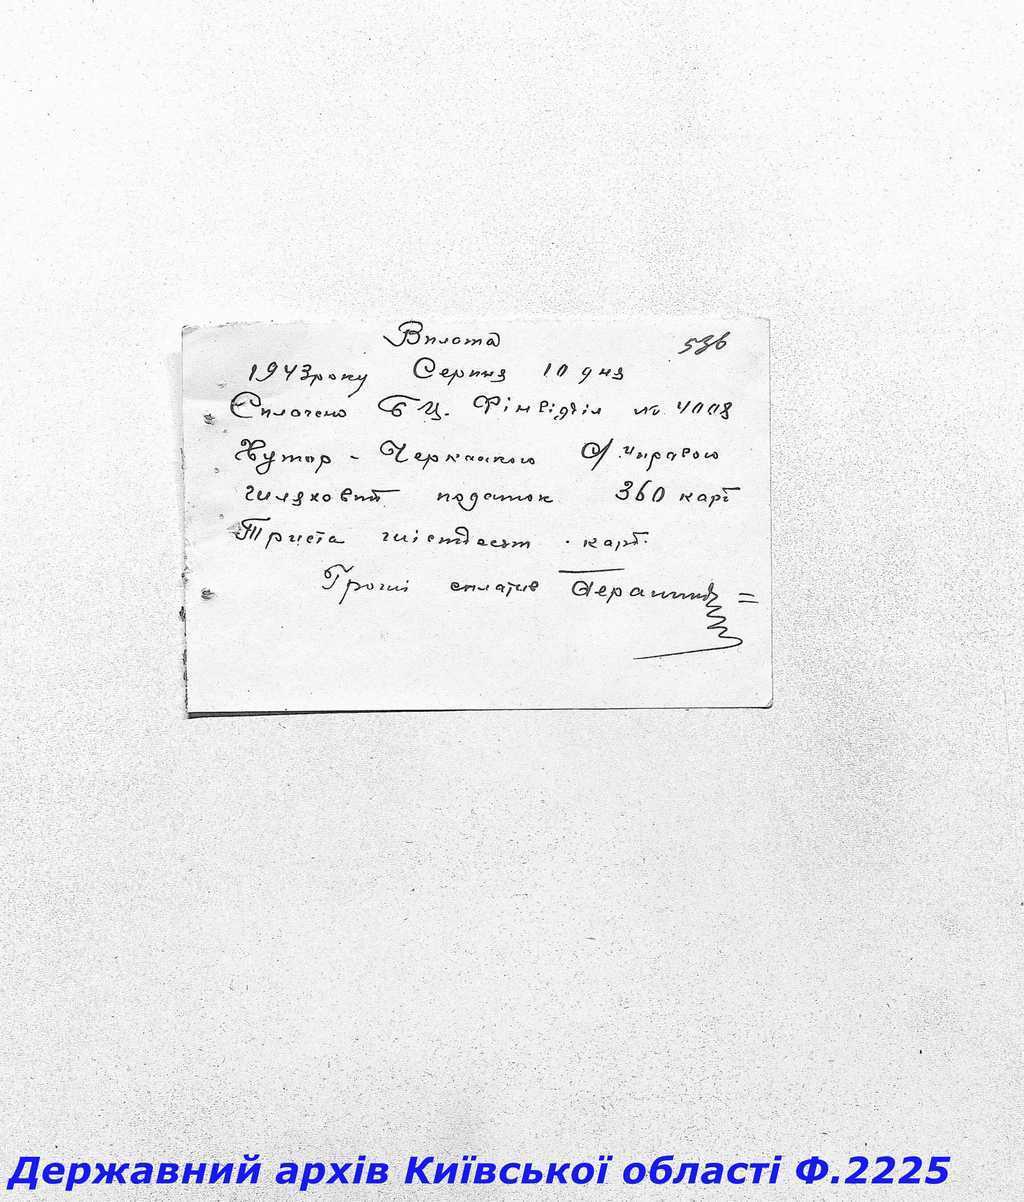 Вплата
536
1943 року Серпня 10 дня
Сплочено Б Ц. Фінвідділ
Хутор - Черкаською С/Управою
шляховий податок 360 карб
Триста шістдесят карб.
Гроші сплатив
Державний архів Київської області Ф.2225